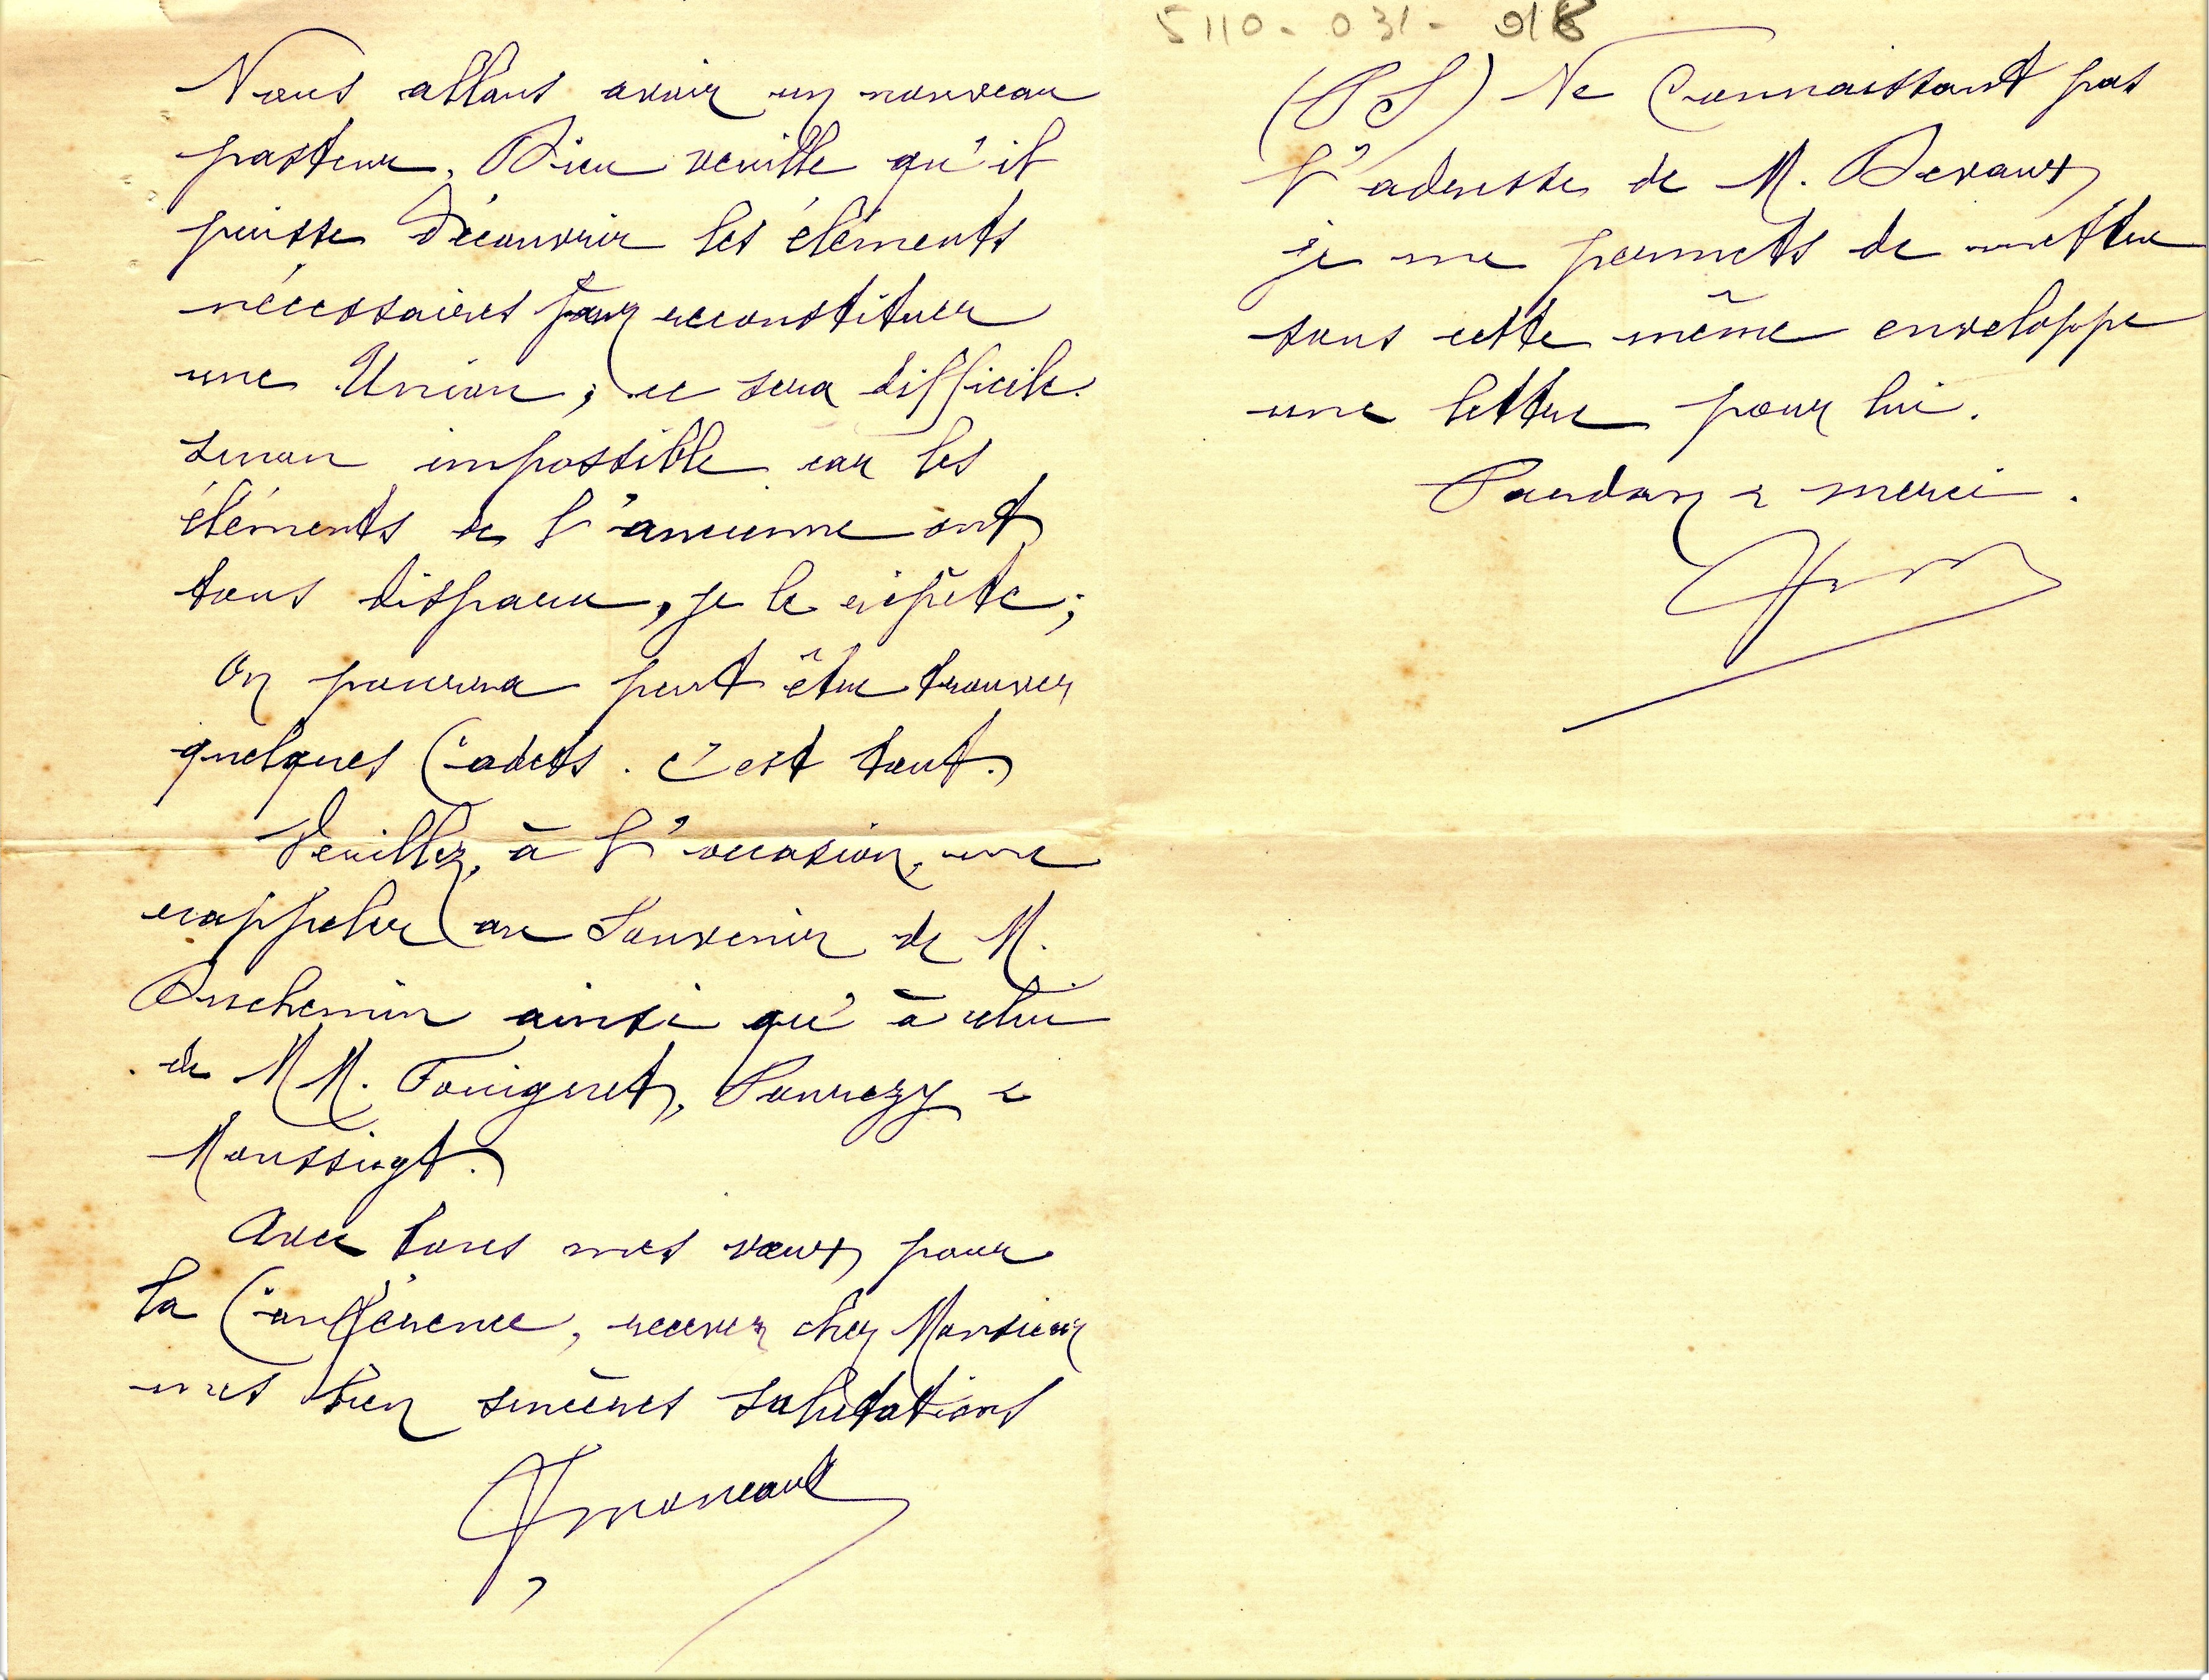 Nous allons avoir un nouveau
pasteur, Dieu veuille qu'il
puisse découvrir les éléments
nécessaires pour reconstituer
une Union; ce sera difficile
sinon impossible car les
éléments de l'ancienne ont
tous disparu, je le répète;
On pourra peut être trouver
quelques Cadets. c'est tout.
Veuillez, à l'occasion, me
rappeler au Souvenir de M.
Duchemin ainsi qu'à celui
de MM. Pourezy &
Moussigt.
Avec tous mes vœux pour
la Conférence, recevez cher Monsieur
mes bien sincères salutations
5110-031-
(PS) Ne Connaissant pas
l'adresse de M. Devaux
je me permets de mettre
sous cette même enveloppe
une lettre pour lui.
Pardon & merci.